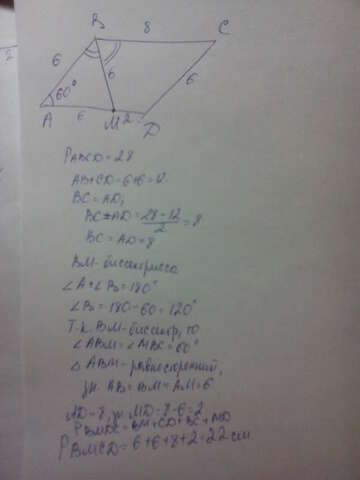 B 8 C
6 6 6
60°
A 6 M 2 D
P ABCD = 28
AB+CD=6+6=12
BC=AD,
BC=AD=\frac{28-12}{2}=8
BC=AD=8
BM-биссектрисса
∠A+∠B=180°
∠B=180-60=120°
Т.к. BM-биссектр, то
∠ABM=∠MBC=60°
△ABM-равносторонний,
зн. AB=BM=AM=6
AD=8, зн MD=8-6=2
P BMDC=BM+CD+BC+MD
P BMCD=6+6+8+2=22 см